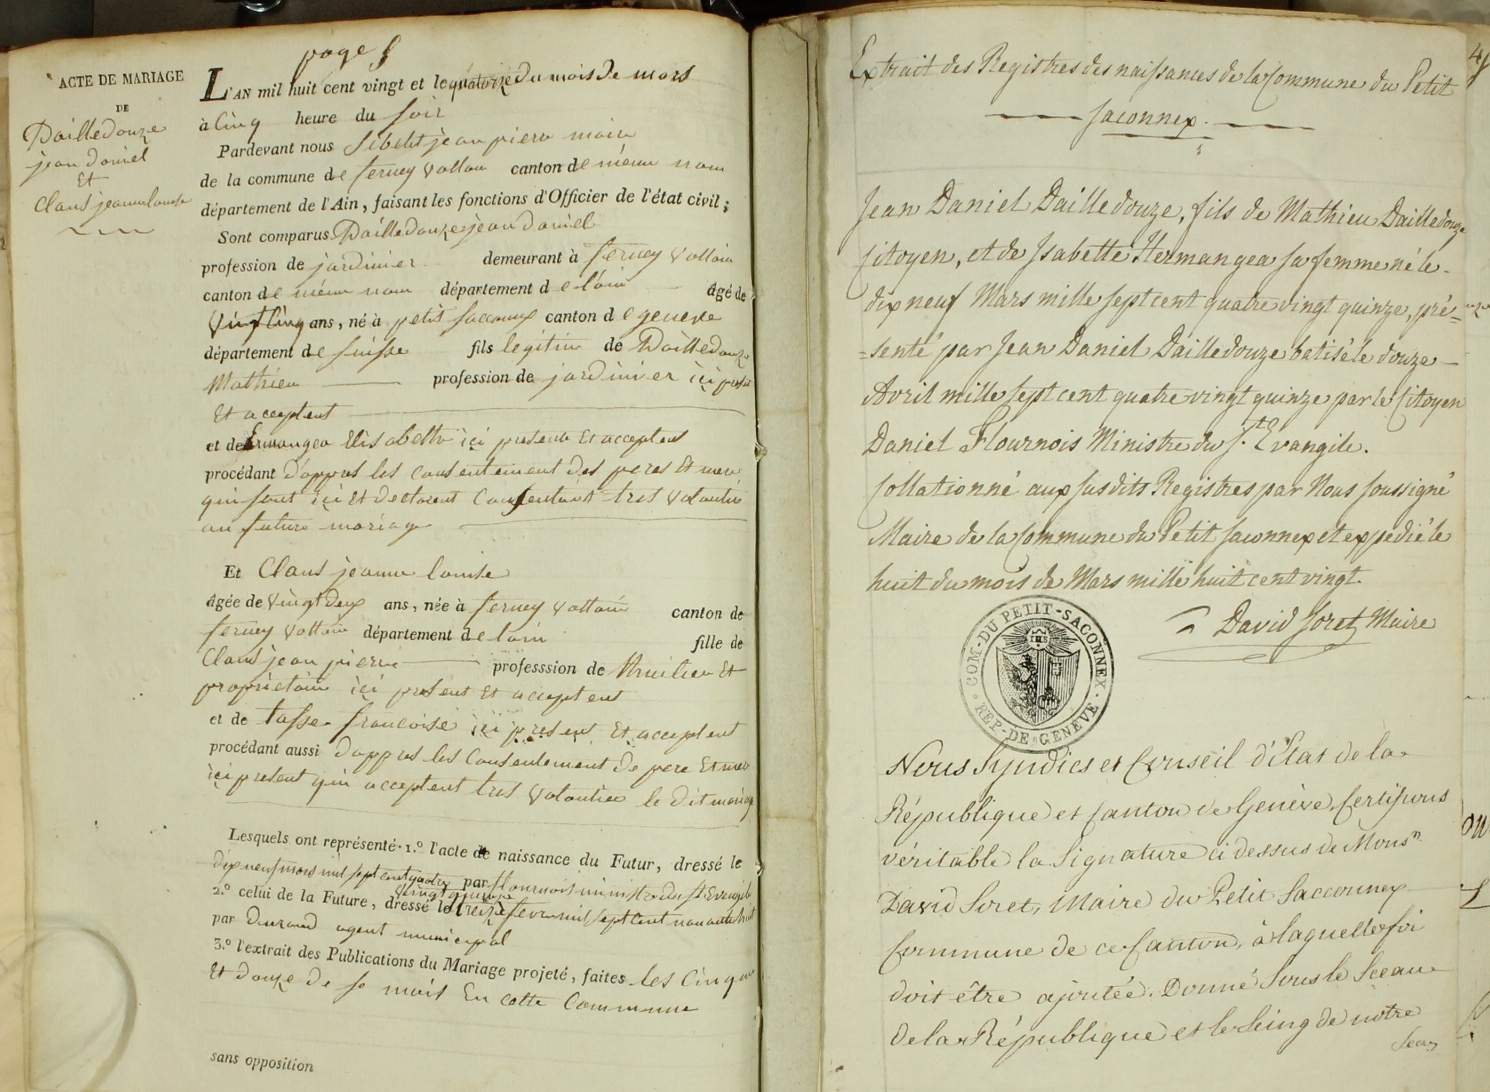 page 8
ACTE DE MARIAGE
DE
Dailledouze
jean daniel
Et
Claus jeanne louise
L'AN mil huit cent vingt et le quatorze du mois de mars
à Cinq heure du soir
Pardevant nous jean piere maire
de la commune de ferney voltaire canton de méme nom
département de l'Ain, faisant les fonctions d'Officier de l'état civil;
Sont comparus Dailledouze jean daniel
profession de jardinier demeurant à ferney voltaire
canton de méme nom département de lain âgé de
vingt cinq ans, né à petit sacconnex canton de geneve
département de suisse fils legitime de Dailledouze
Mathieu profession de jardinier ici present
Et acceptent
et de Ermangea Elisabette ici presente Et acceptent
procédant dappres les consentement des peres Et mere
qui sont ici Et declarent Consentant tres volontié
au future mariage
Et Claus jeanne louise
âgée de vingt deux ans, née à ferney voltaire canton de
ferney voltaire département de lain fille de
Claus jean pierre professsion de Et
propriétaire ici present Et acceptent
et de tasse francoise ici present Et acceptent
procédant aussi dappres les Consentement de pere Et mere
ici present qui acceptent tres volontier le dit mariage
Lesquels ont représenté 1.º l'acte de naissance du Futur, dressé le
dix neuf mars mil sept cent quatre par flournois ministre du st Evangile
vingt quinze
2.º celui de la Future, dressé le treize fevrie mil sept cent nonante huit
par Durand agent municipal
3.º l'extrait des Publications du Mariage projeté, faites les Cinq
Et douze de se mois En cette Commune
sans opposition
Extrait des Registres des naissances de la Commune du Petit
Saconnex.
Jean Daniel Dailledouze, fils de Mathieu Dailledouze
Citoyen, et de Isabette Hermangea sa femme né le
dix neuf Mars mille sept cent quatre vingt quinze, pré=
=senté par Jean Daniel Dailledouze batisé le douze
Avril mille sept cent quatre vingt quinze par le Citoyen
Daniel Flournois Ministre du St. Evangile.
Collationné aux susdits Registres par Nous soussigné
Maire de la Commune du Petit Saconnex et expédié le
huit du mois de Mars mille huit cent vingt.
David Soret Maire
COM. DU PETIT-SACONNEX.
REP. DE GENÈVE
Nous Syndics et Conseil d'Etat de la
République et Canton de Genève, Certifions
véritable la Signature ci dessus de Monsr.
David Soret, Maire du Petit Sacconnex
Commune de ce Canton, à laquelle foi
doit être ajoutée. Donné sous le Sceau
de la République et le Seing de notre